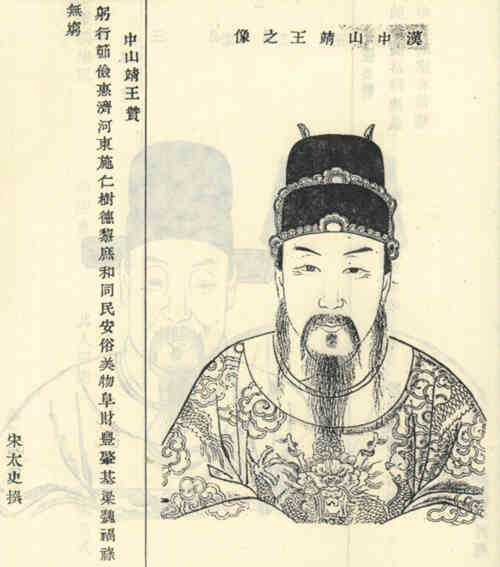 漢中山靖王之像
中山靖王贊
躬行節儉惠濟河東施仁樹德黎庶和同民安俗美物阜財豐肇基梁魏福祿
無窮
宋太史撰